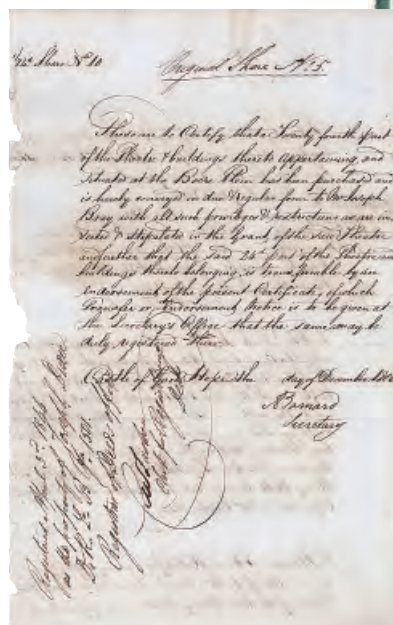 1/24 Share No 10
Original Share No 5.
These are to Certify that a Twenty fourth part
of the Theatre & buildings thereto appertaining, and
situated at the Boors Plein has been purchased and
is hereby conveyed in due & regular form to Mr Joseph
Bray with all such privileges & restrictions as are in
serted & stipulated in the Grant of the said Theatre
and further that the said 24th part of the Theatre and
buildings thereto belonging, is transferable by an
Endorsement of the present Certificate, of which
Transfer or Endorsement Notice is to be given at
the Secretary's Office that the same may be
duly registered there.
Castle of Good Hope this day of December
A Barnard
Secretary
Registered
as the property of
Registrar of